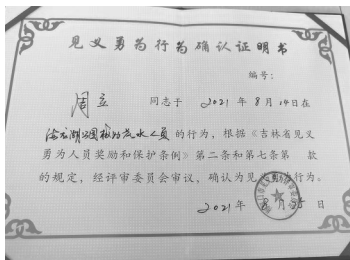 见义勇为行为确认证明书
编号：
周立 同志于 2021年8月14日在
公园救助落水人员的行为，根据《吉林省见义
勇为人员奖励和保护条例》第二条和第七条第 款
的规定，经评审委员会审议，确认为见义勇为行为。
2021年8月25日